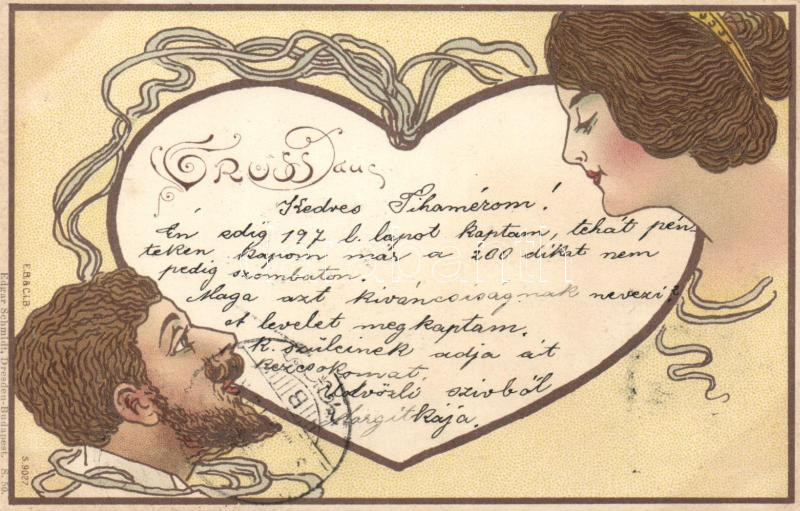 GRUSS aus
Kedves Tihamérom!
Én edig 197 l. lapot kaptam, tehát pén-
teken kapom már a 200 dikat nem
pedig szombaton.
Maga azt kiváncsiságnak nevezi?
A levelet megkaptam.
k. szüleinek adja át
kézcsókomat
Üdvözli szivből
Margitkája.
F.B.&C.i.B.
Edgar Schmidt, Dresden-Budapest. S. 50.
S. 9027.